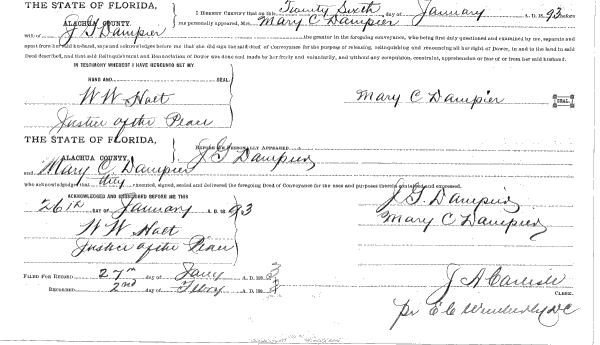 THE STATE OF FLORIDA,
ALACHUA COUNTY.
I HEREBY CERTIFY that on this Twenty Sixth day of January A. D. 18 93 before
me personally appeared, Mrs. Mary C Dampier
wife of J G Dampier the grantor in the foregoing conveyance, who being first duly questioned and examined by me, separate and
apart from her said husband, says and acknowledges before me that she did sign the said deed of Conveyance for the purpose of releasing, relinquishing and renouncing all her right of Dower, in and to the land in said
Deed described, and that said Relinquishment and Renunciation of Dower was done and made by her freely and voluntarily, and without any compulsion, constraint, apprehension or fear of or from her said husband.
IN TESTIMONY WHEREOF I HAVE HEREUNTO SET MY
HAND AND SEAL.
W W Holt
Mary C Dampier SEAL.
Justice of the Peace
THE STATE OF FLORIDA,
ALACHUA COUNTY,
BEFORE ME PERSONALLY APPEARED J G Dampier
and Mary C. Dampier
who acknowledged that they executed, signed, sealed and delivered the foregoing Deed of Conveyance for the uses and purposes therein contained and expressed.
ACKNOWLEDGED AND SUBSCRIBED BEFORE ME THIS
26th DAY OF January A. D. 18 93
J. G. Dampier
Mary C Dampier
W W Holt
Justice of the Peace
FILED FOR RECORD 27th day of Jany A. D. 189 3
RECORDED 2nd day of Feby A. D. 189 3
J A Carlisle
CLERK.
pr E C Wimberly D C